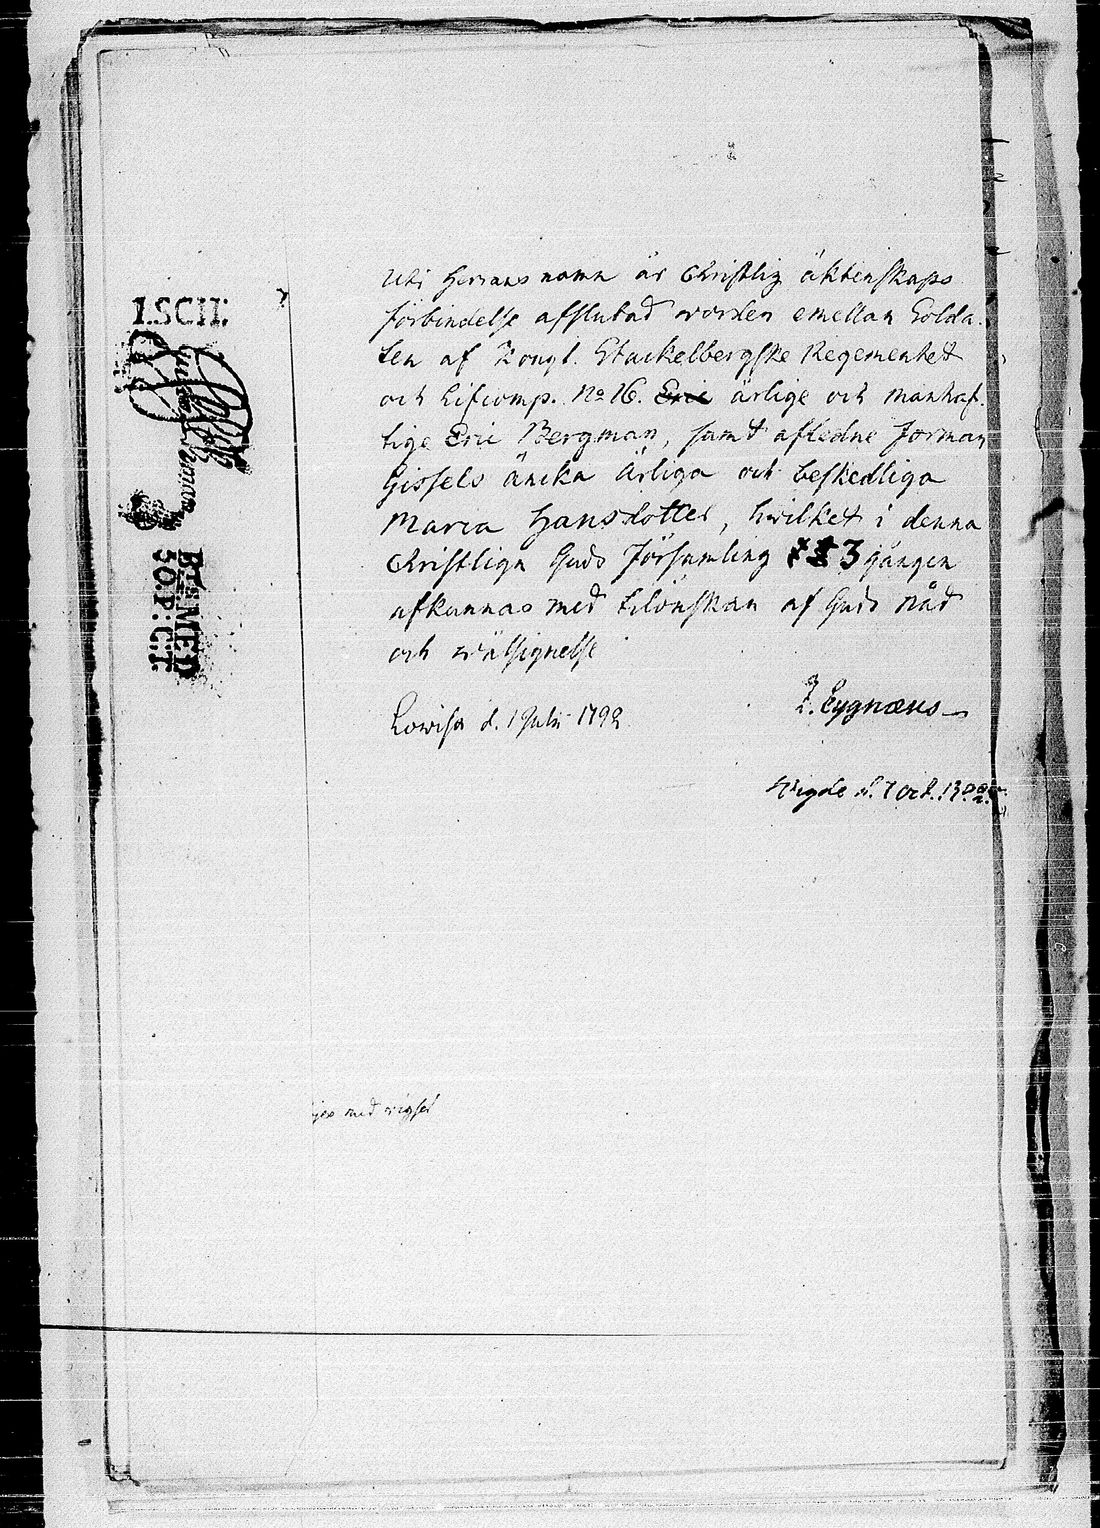 Uti Herrans namn är Christlig äktenskaps
förbindelse afslutad worden emellan Solda-
ten af Kongl. Stackelbergske Regementet
och Lifcomp. No 16. Eric ärlige och manhaf-
tige Eric Bergman, samt afledne Forman
Gissels äncka ärliga och beskedliga
Maria Hansdotter, hwilket i denna
Christliga Guds Församling 3 gången
afkunnas med tilönskan af Guds nåd
och wälsignelse
Lowisa d. 1 Julii 1792
Z. Cygnæus
Wigde d. 7 Oct.
med wigsel
1.SCH:
BTS MED
50.P:C.T.